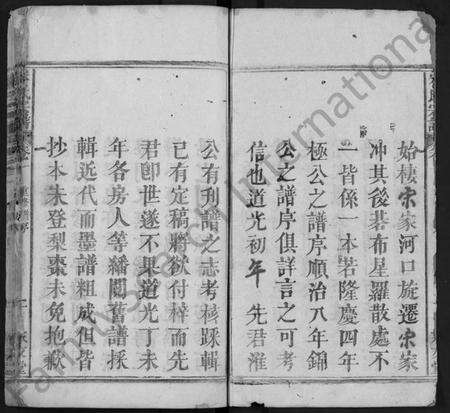 始棲宋家河口旋遷宋家
冲其後碁布星羅散處不
一皆係一本若隆慶四年
極公之譜序順治八年錦
公之譜序俱詳言之可考
信也道光初年 先君淮
公有刋譜之志考核蹂輯
已有定稿將欲付梓而先
君卽世遂不果道光丁未
年各房人等繙閱舊譜採
輯近代而墨譜粗成但皆
抄本未登梨棗未免抱歉
FamilySearch International